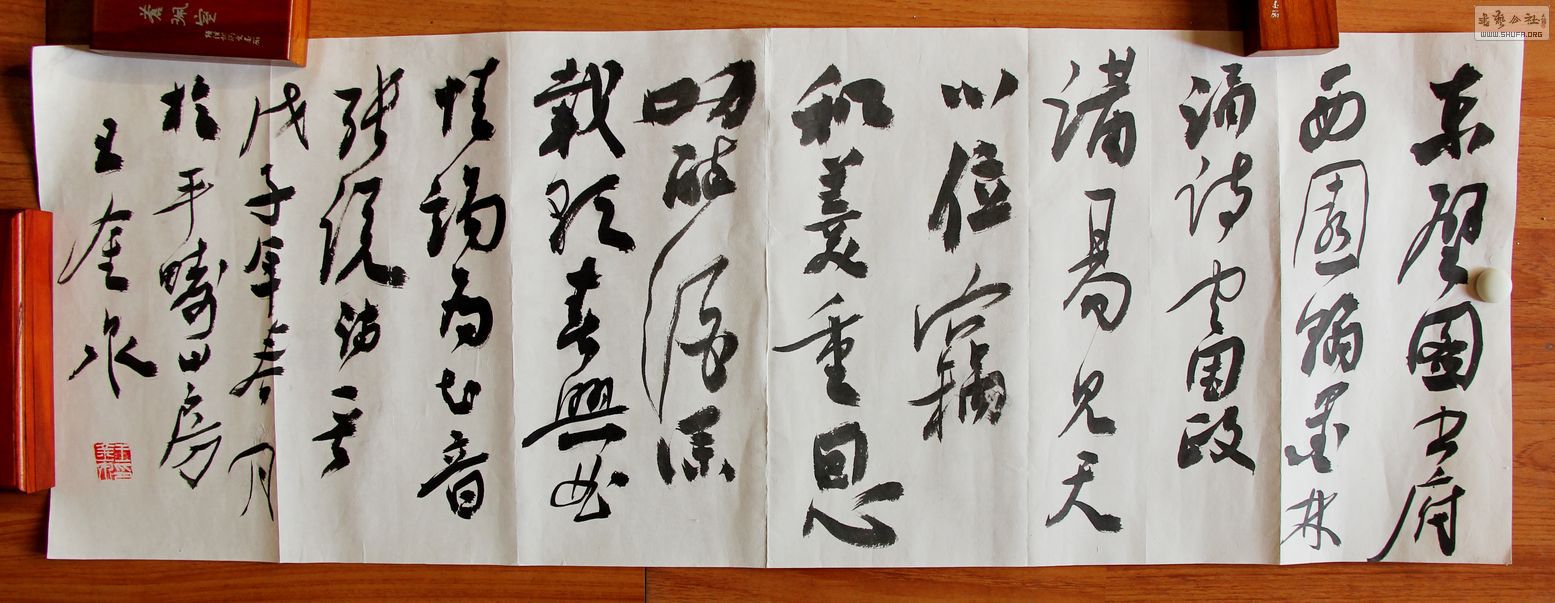 東壁圖書府
西園翰墨林
誦詩聞国政
講易見天
心位竊
和羹重恩
叨醉酒深
載歌春興曲
情竭為知音
張說詩
戊子年春月
於平疇田房
王金泉
書藝公社
WWW.SHUFA.ORG